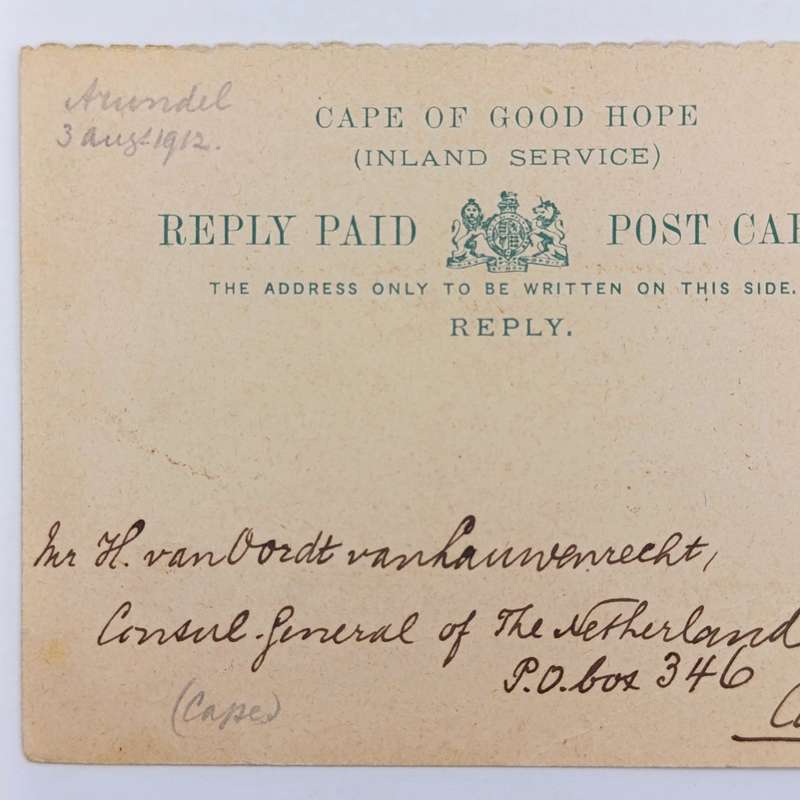 Arundel
3 Augt 1912.
CAPE OF GOOD HOPE
(INLAND SERVICE)
REPLY PAID POST CAR
THE ADDRESS ONLY TO BE WRITTEN ON THIS SIDE.
REPLY.
Mr H. van Oordt van Lauwenrecht,
Consul-General of The Netherland
P.O. box 346
(Cape)